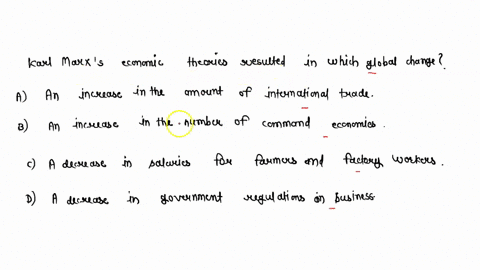 Karl Marx's economic theories resulted in which global change?
A) An increase in the amount of international trade.
B) An increase in the number of command economies.
C) A decrease in salaries for farmers and factory workers.
D) A decrease in government regulations on business.